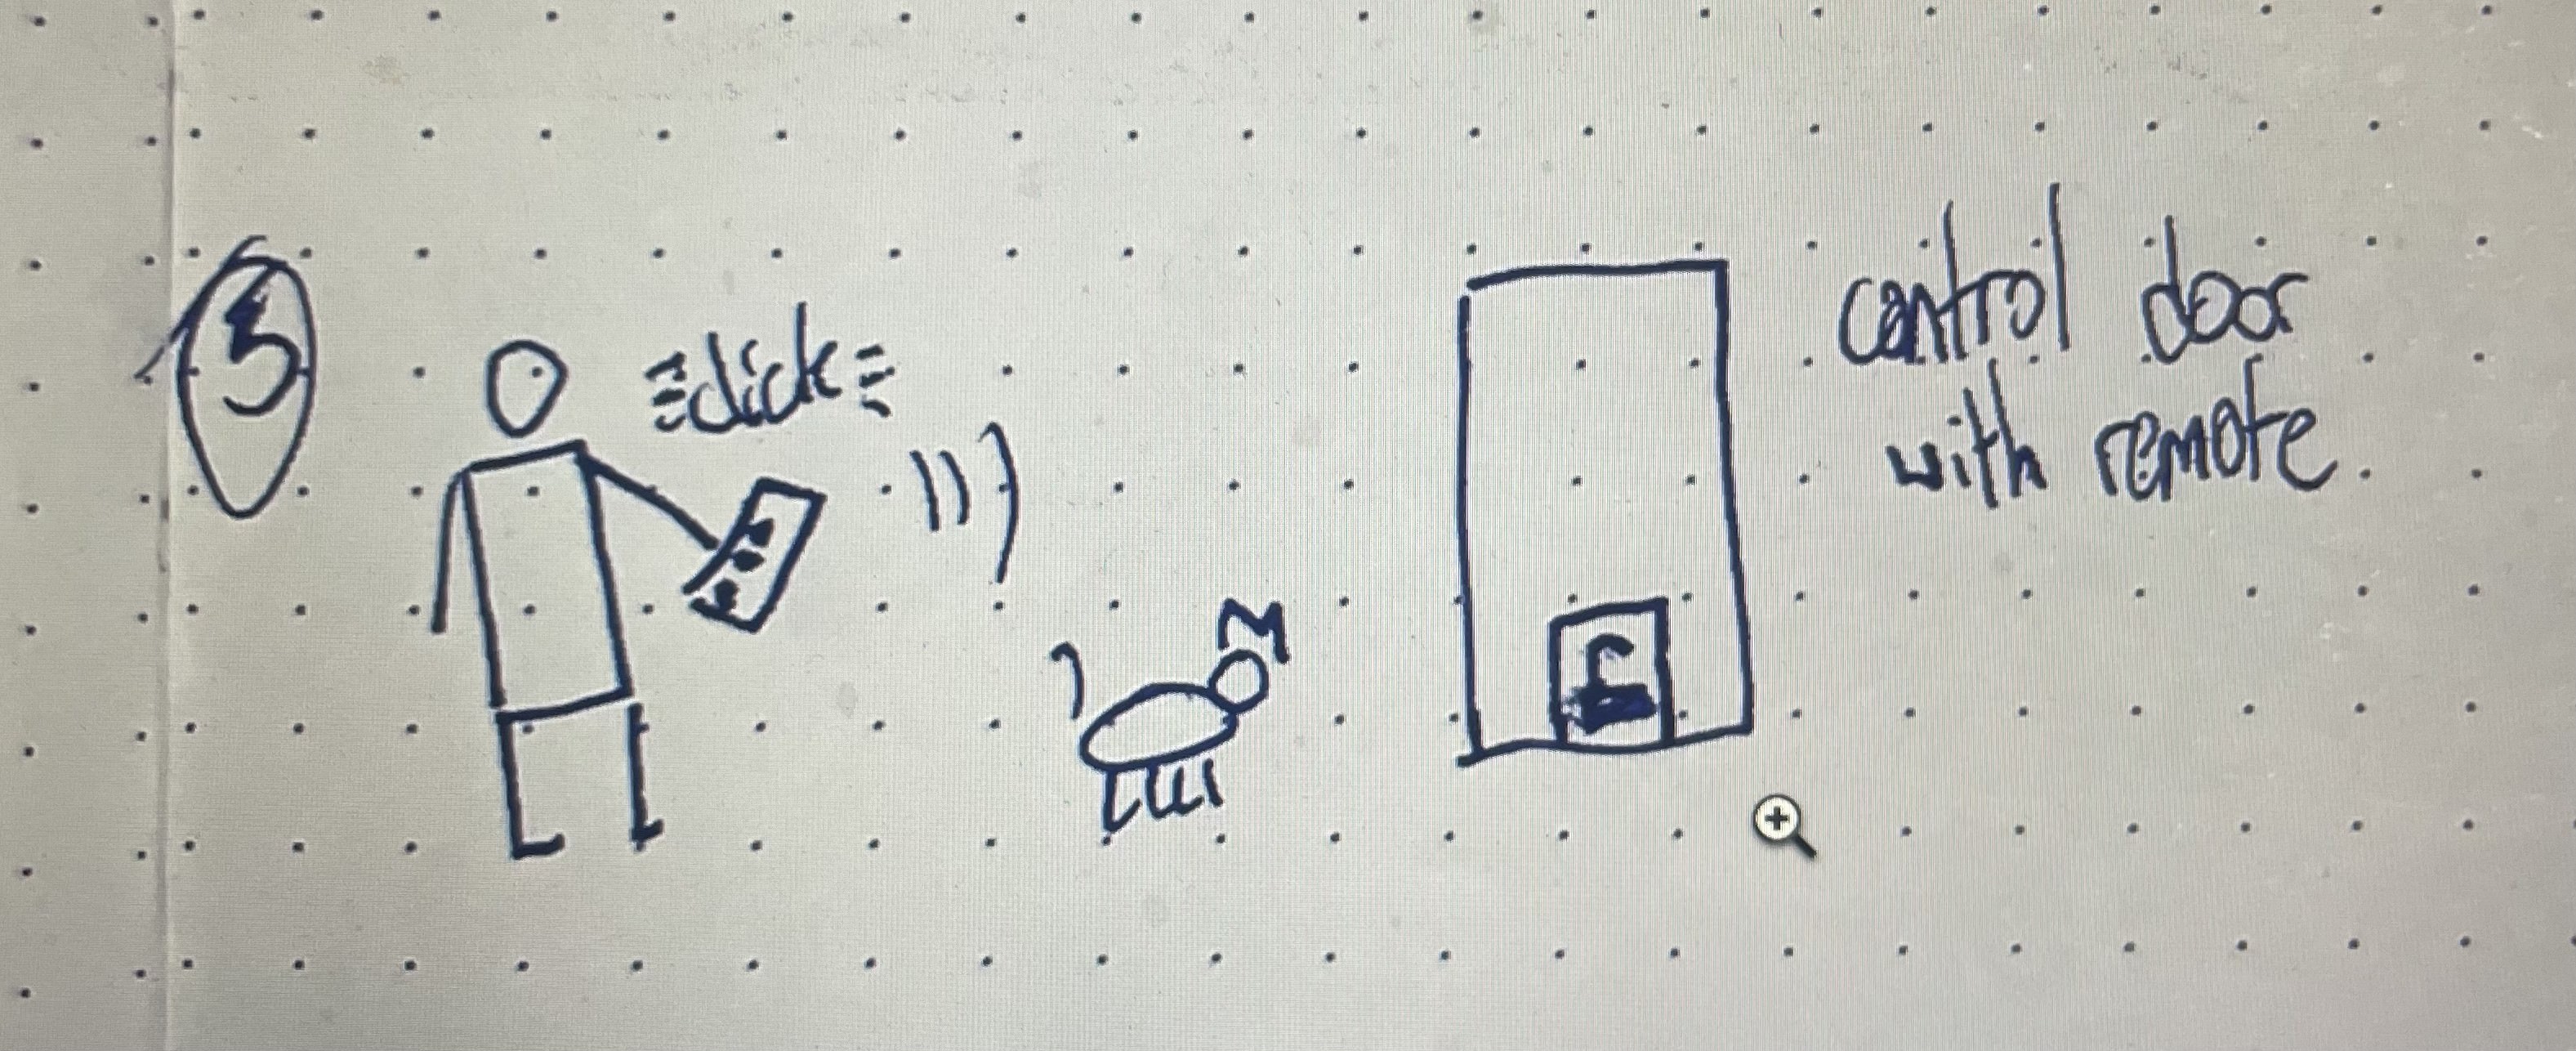 5
click
control door
with remote.